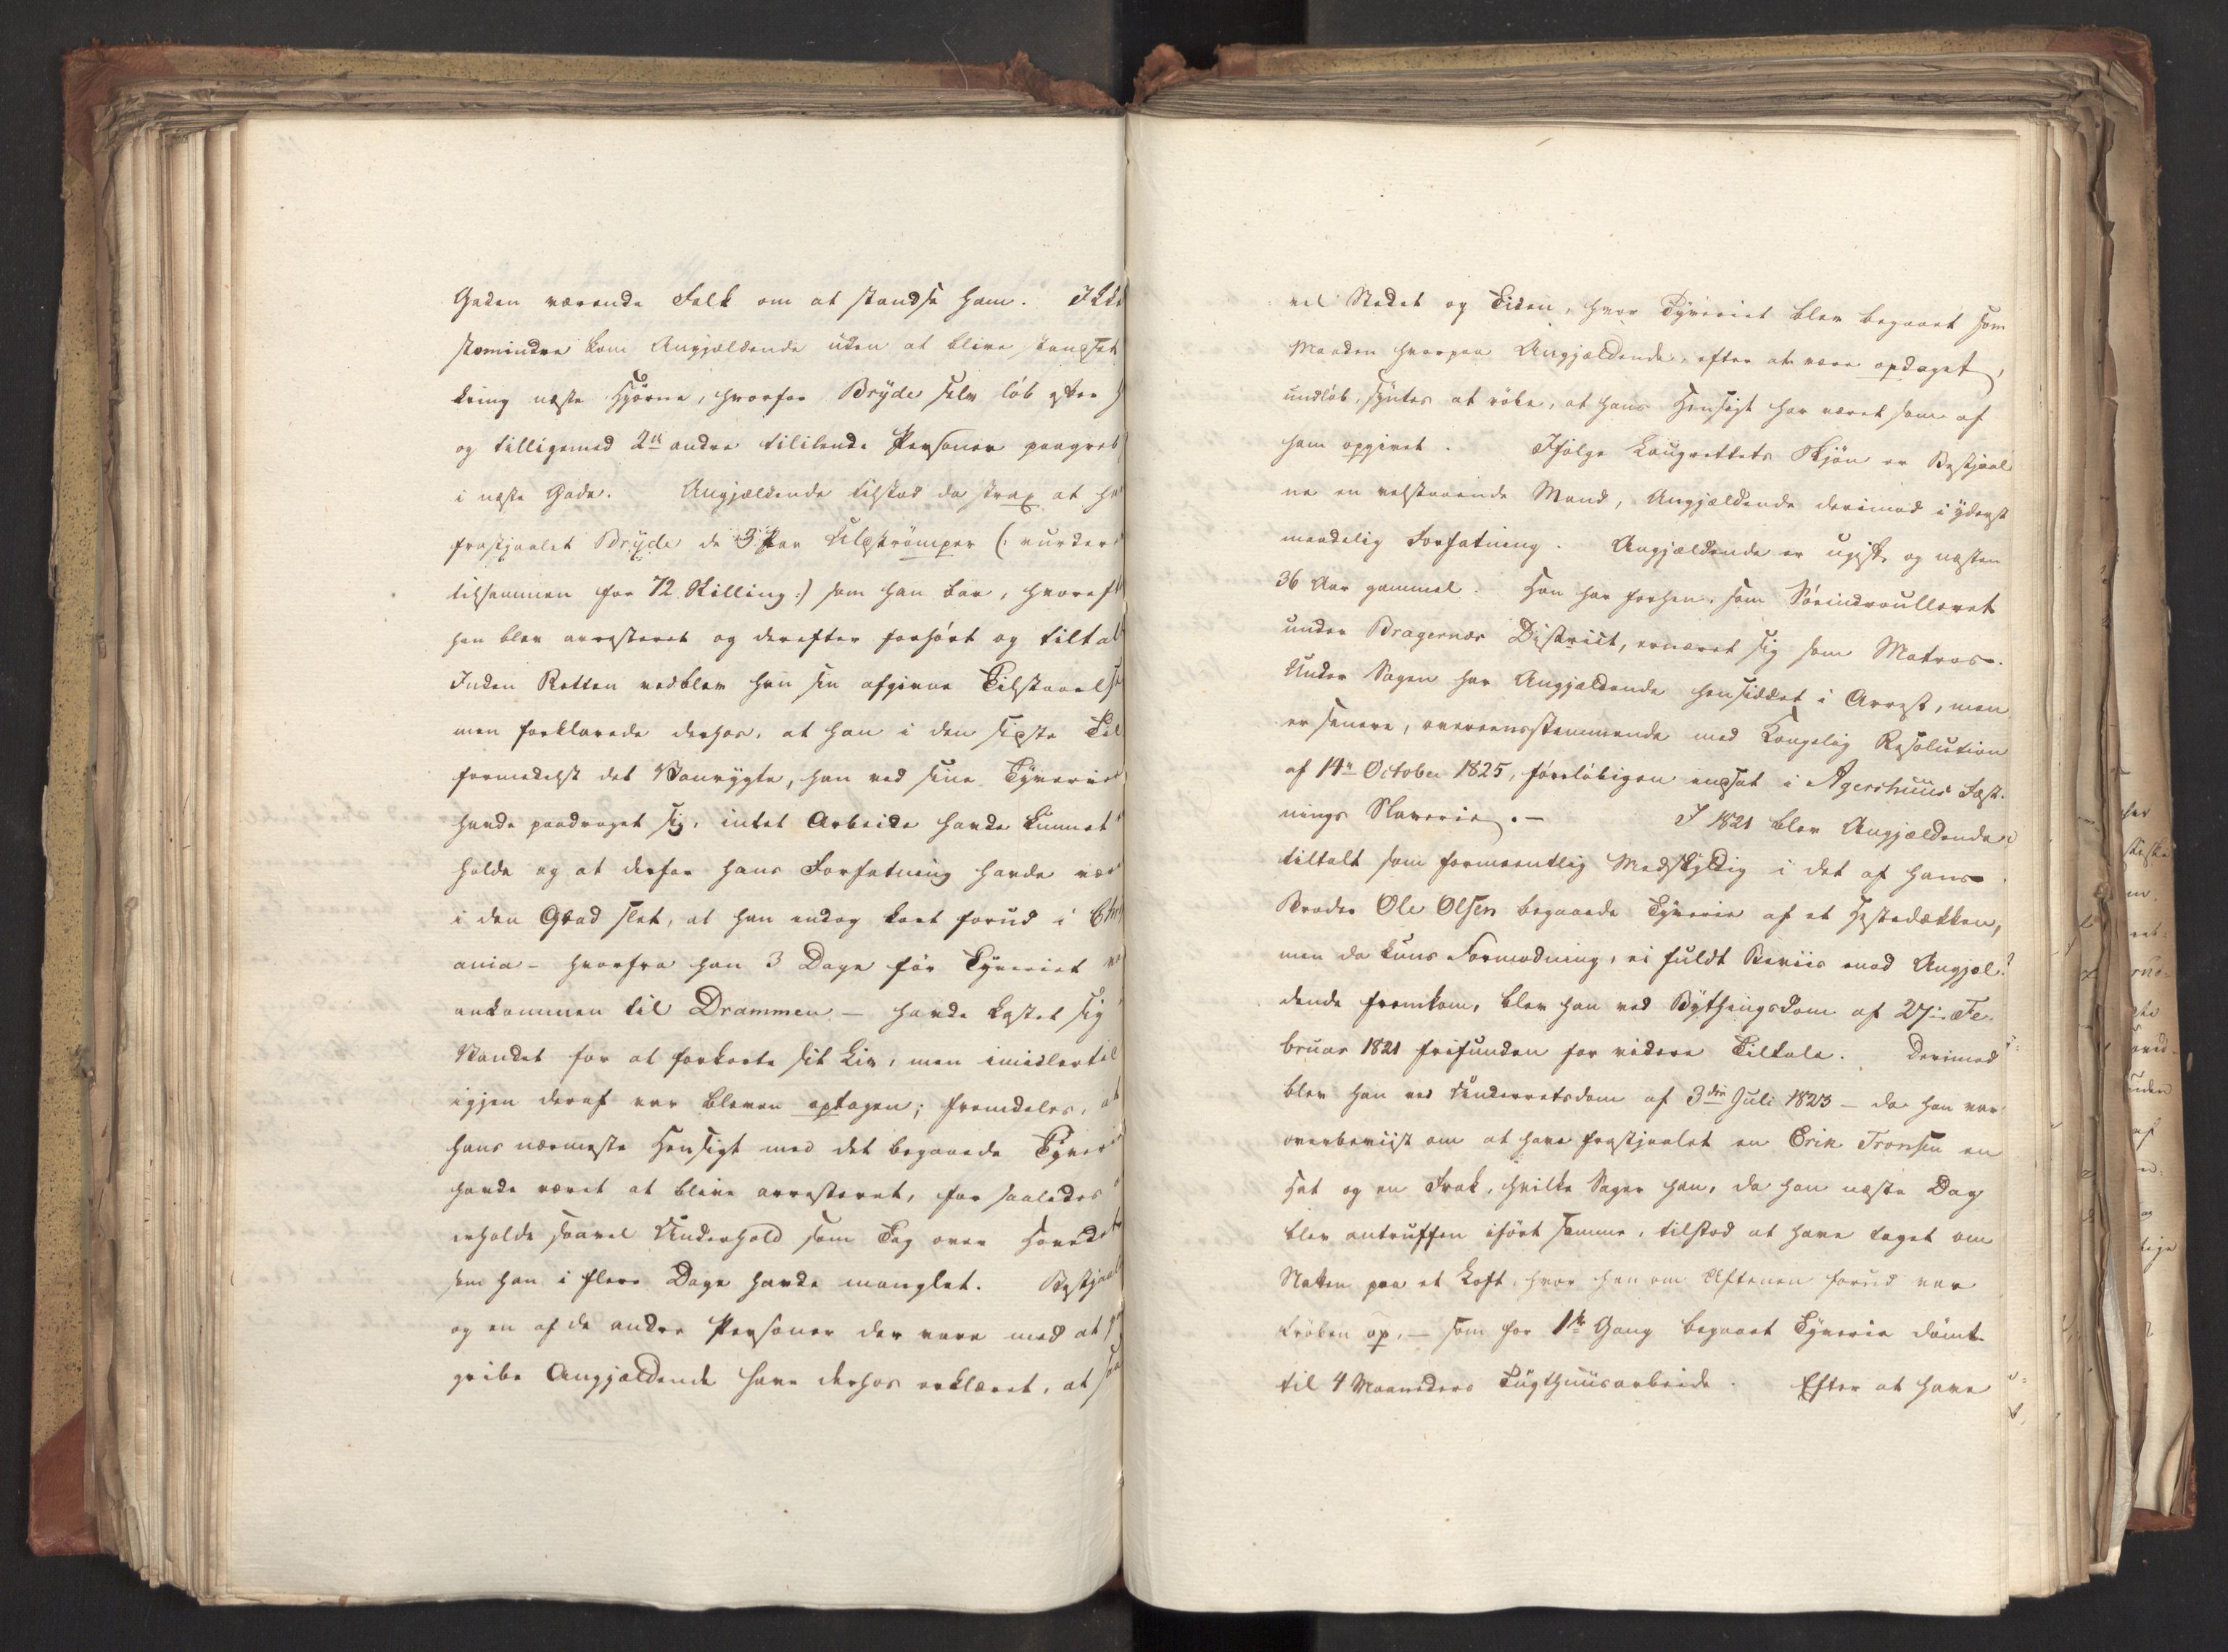 Gaden værende Folk om at standse ham. Ikke
stomindre kom Angjældende uden at blive standset
kring næste Hjörne, hvorfor Bryde selv löb efter
og tilligemed 2de andre tililende Personer paagreb
i næste Gade. Angjældende tilstod da strax at ha
frastjaalet Bryde de 3 Par Uldströmper (: vurdere
tilsammen for 72 Skilling :) som han bar, hvoreft
han blev arresteret og derefter forhört og tiltal
Inden Retten vedblev han sin afgivne Tilstaaelse
men forklarede derhos, at han i den sidste Tid
formedelst det Vanrygte, han ved sine Tyverier
havde paadraget sig, intet Arbeide havde kunnet
holde og at derfor hans Forfatning havde vær
i den Grad slet, at han endog kort forud i Chri
ania - hvorfra han 3 Dage för Tyveriet va
ankommen til Drammen - havde kastet sig
Vandet for at forkorte sit Liv, men imidlertid
igjen deraf var bleven optagen; fremdeles, at
hans nærmeste Hensigt med det begaaede Tyverie
havde været at blive arresteret, for saaledes
erholde saavel Underhold som Tag over Hovedet
som han i flere Dage havde manglet. Bestjaal
og en af de andre Personer der vare med at
gribe Angjældende have derhos erklæret, at saa
vel Stedet og Tiden, hvor Tyveriet blev begaaet som
Maaden hvorpaa Angjældende, efter at være opdaget,
undlöb, syntes at röbe, at hans Hensigt har været som af
ham opgivet. Ifölge Laugrettets Skjön er Bestjaal
ne en velstaaende Mand, Angjældende derimod i yderst
maadelig Forfatning. Angjældende er ugift, og næsten
36 Aar gammel. Han har forhen, som Söeindroulleret
under Bragernæs District, ernæret sig som Matros.
Under Sagen har Angjældende hensiddet i Arrest, men
er senere, overeensstemmende med Kongelig Resolution
af 14de October 1825, foreløbigen indsat i Agershuus Fæst-
nings Slaverie. - I 1821 blev Angjældende
tiltalt som formeentlig Medskyldig i det af hans
Broder Ole Olsen begaaede Tyverie af et Hestedækken,
men da kuns Formodning, ei fuldt Beviis mod Angjæl-
dende fremkom, blev han ved Bythingsdom af 27de Fe-
bruar 1821 frifunden for videre Tiltale. Derimod
blev han ved Underretsdom af 3die Juli 1823 - da han var
overbeviist om at have frastjaalet en Erik Tronsen en
Hat og en Frak, hvilke Sager han, da han næste Dag
blev antruffen iført samme, tilstod at have taget om
Natten paa et Loft, hvor han om Aftenen forud var
kröben op, - som for 1ste Gang begaaet Tyverie dömt
til 4 Maaneders Tugthuusarbeide. Efter at have